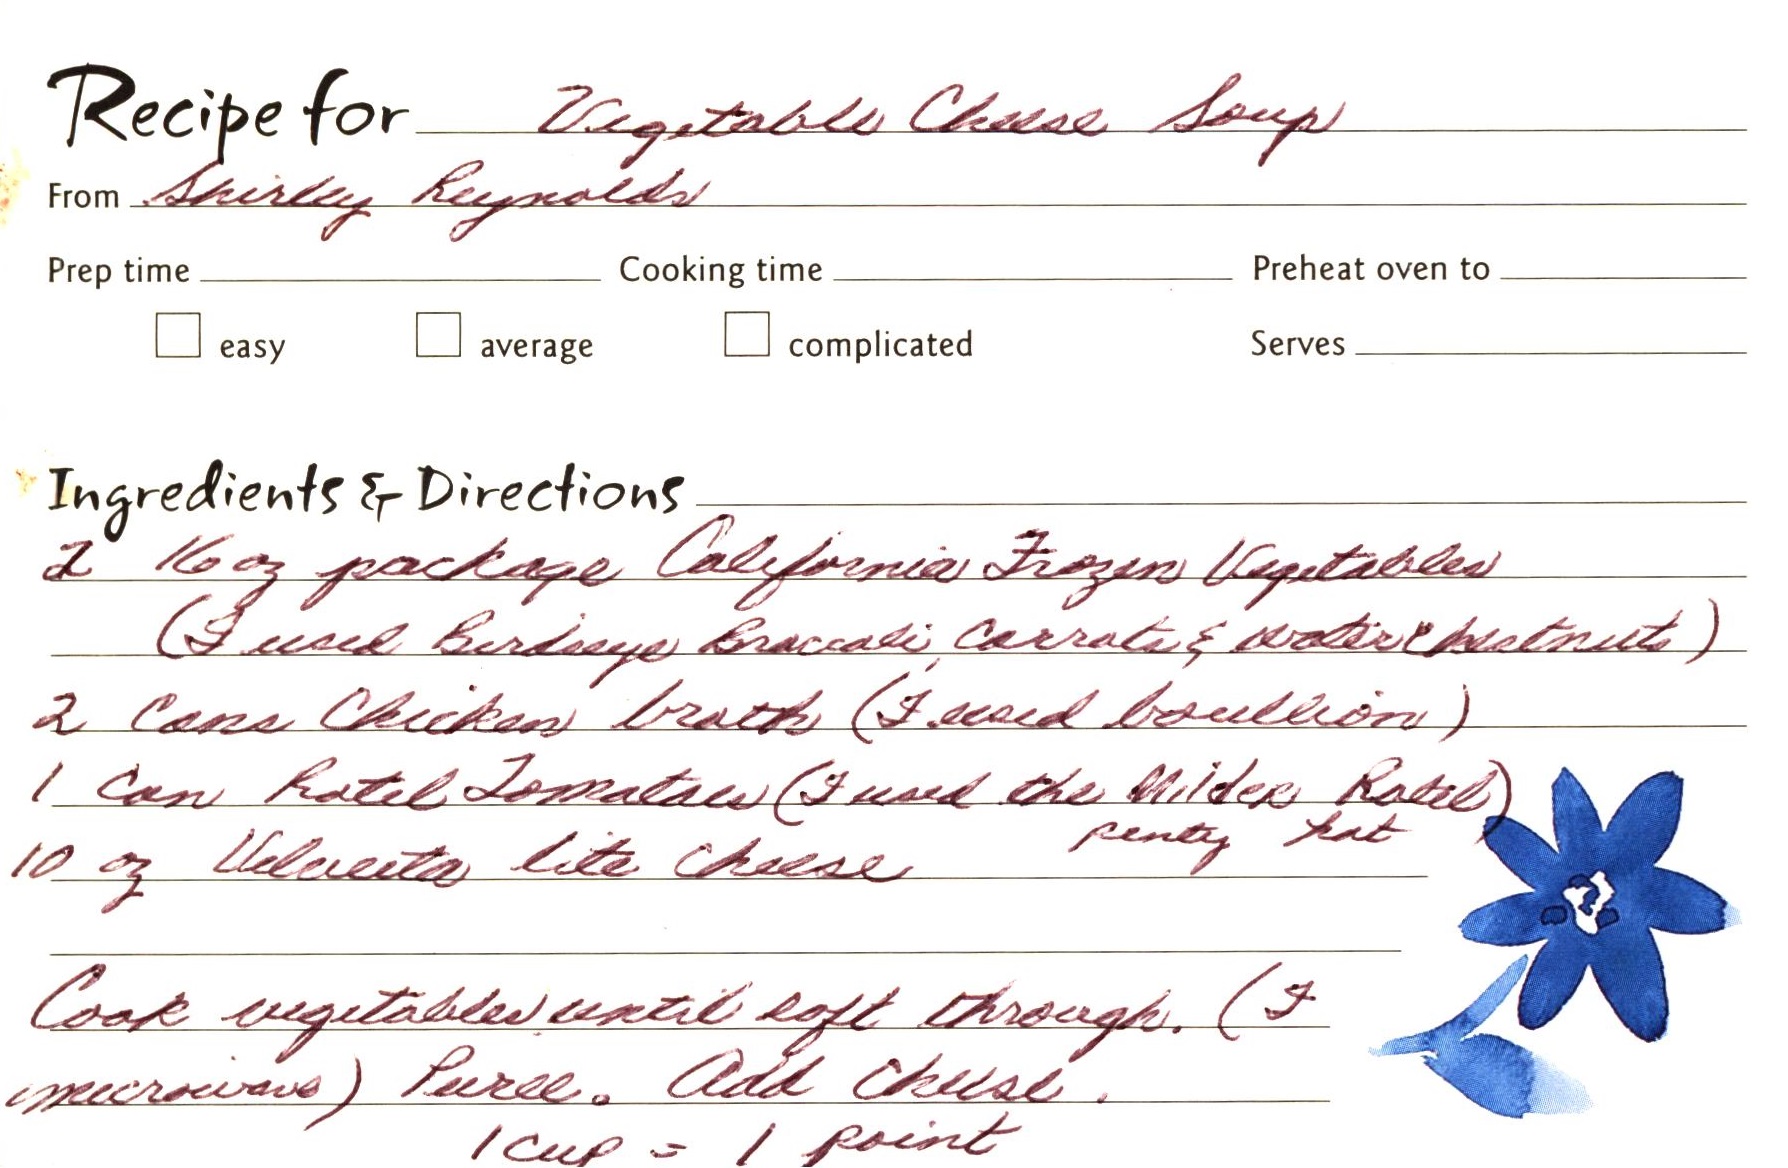 Recipe for Vegetable Cheese Soup
From Shirley Reynolds
Prep time Cooking time Preheat oven to
easy average complicated Serves
Ingredients & Directions
2 16 oz package California Frozen Vegetables
(I used Birdseye Broccoli, Carrots & water chestnuts)
2 Cans Chicken broth (I used boullion)
1 Can Rotel Tomatoes (I used the Milder Rotel)
penty hot
10 oz Velveeta lite cheese
Cook vegetables until soft through. (I
microwave) Puree. Add Cheese.
1 cup = 1 point